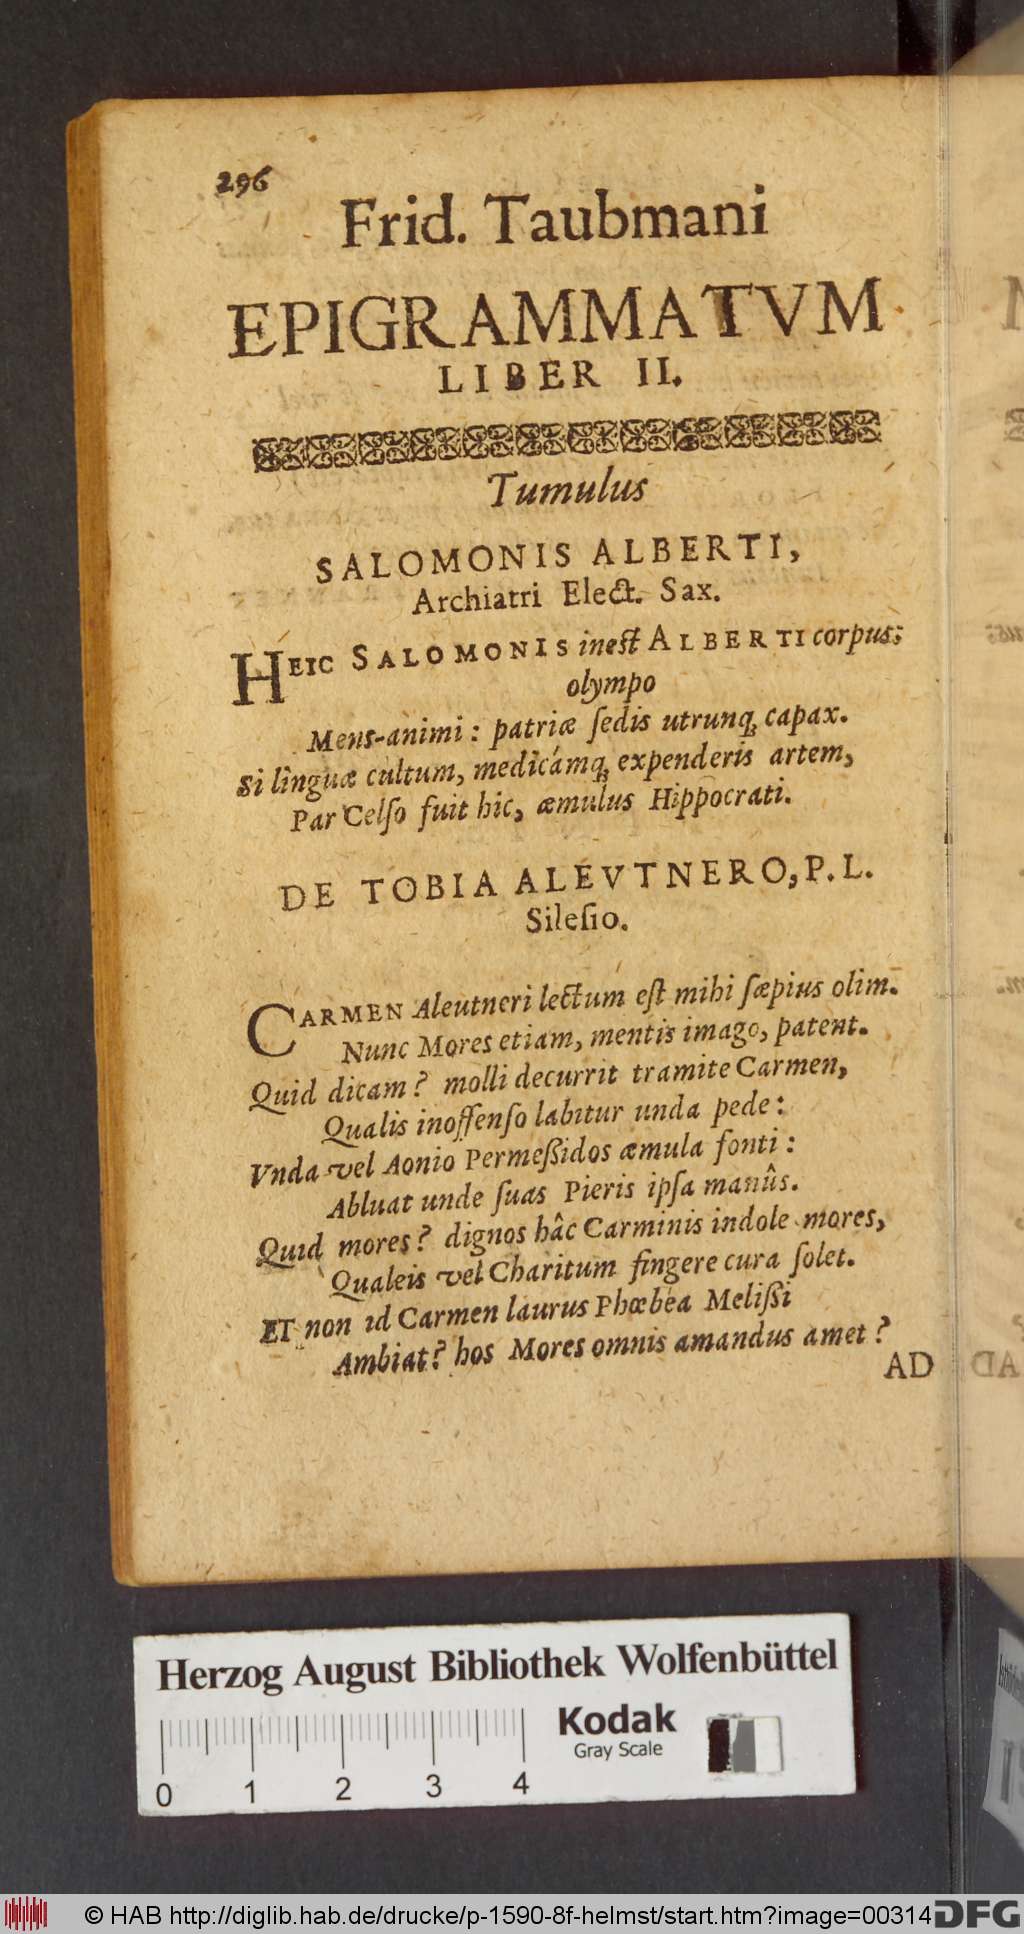 296
Frid. Taubmani
EPIGRAMMATVM
LIBER II.
Tumulus
SALOMONIS ALBERTI,
Archiatri Elect. Sax.
HEIC SALOMONIS inest ALBERTI corpus;
olympo
Mens-animi: patriæ ſedis utrunq; capax.
Si linguæ cultum, medicámq; expenderis artem,
Par Celſo fuit hic, æmulus Hippocrati.
DE TOBIA ALEVTNERO, P. L.
Sileſio.
CARMEN Aleutneri lectum eſt mihi ſæpius olim.
Nunc Mores etiam, mentis imago, patent.
Quid dicam? molli decurrit tramite Carmen,
Qualis inoffenſo labitur unda pede:
Vnda vel Aonio Permeſſidos æmula fonti:
Abluat unde ſuas Pieris ipſa manûs.
Quid mores? dignos hâc Carminis indole mores,
Qualeis vel Charitum fingere cura ſolet.
ET non id Carmen laurus Phœbéa Meliſſi
Ambiat? hos Mores omnis amandus amet?
AD
Herzog August Bibliothek Wolfenbüttel
Kodak
Gray Scale
0 1 2 3 4
© HAB http://diglib.hab.de/drucke/p-1590-8f-helmst/start.htm?image=00314
DFG